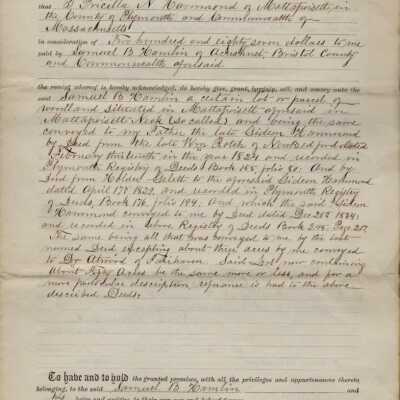 that I Priscilla N Hammond of Mattapoisett in
the County of Plymouth and Commonwealth of
Massachusetts
in consideration of Two hundred and eighty seven dollars to me
paid by Samuel B Hamlin of Acushnet, Bristol County
and Commonwealth aforesaid
the receipt whereof is hereby acknowledged, do hereby give, grant, bargain, sell, and convey unto the
said Samuel B Hamlin a certain lot or parcel of
woodland situated in Mattapoisett aforesaid in
Mattapoisett Neck (so called) and being the same
conveyed to my Father the late Gideon Hammond
by deed from the late Wm Rotch of New Bedford dated
February thirteenth in the year 1824 and recorded in
Plymouth Registry of Deeds Book 155, folio 80. And by
deed from to the aforesaid Gideon Hammond
dated April 1829, and recorded in Plymouth Registry
of Deeds, Book 176, folio 194. And which the said Gideon
Hammond conveyed to me by deed dated Dec
and recorded in above Registry of Deeds Book Page
The same being all that was conveyed to me by the last
named Deed excepting about three acres by me conveyed
to Dr Atwood of Fairhaven. Said Lot now containing
About Acres be the same more or less, and for a
more particular description reference is had to the above
described Deeds.
To have and to hold the granted premises, with all the privileges and appurtenances thereto
belonging, to the said Samuel B Hamlin and
his